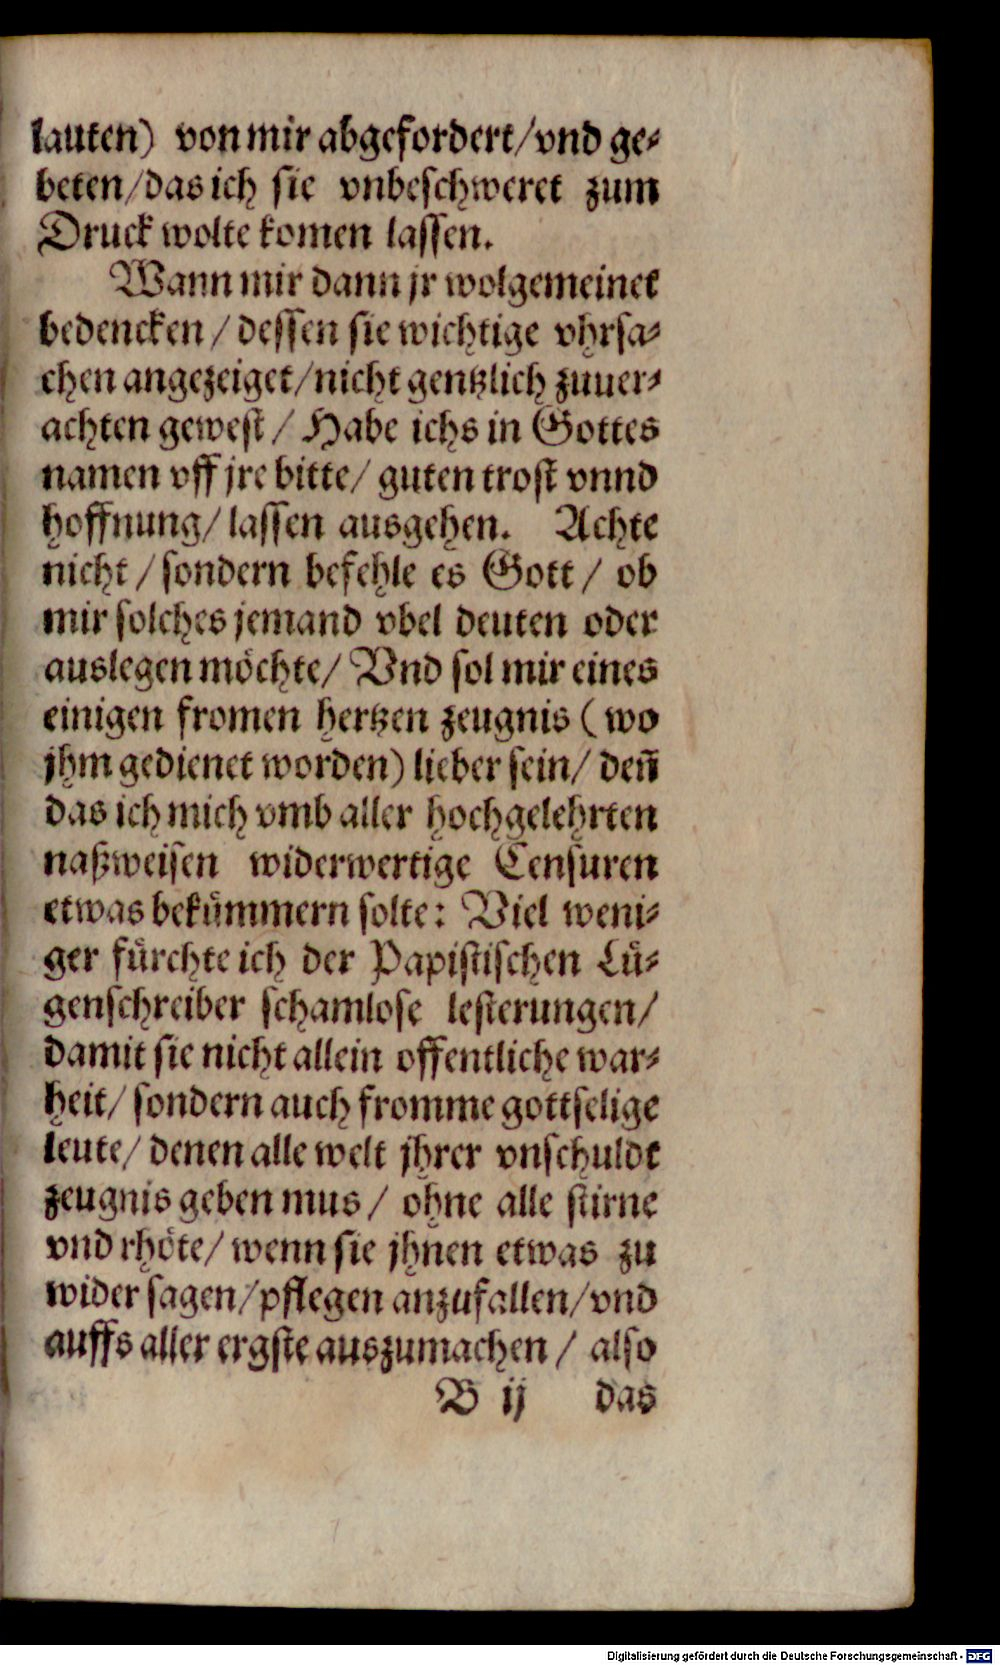 lauten) von mir abgefordert/vnd ge-
beten/das ich sie vnbeschweret zum
Druck wolte komen lassen.
Wann mir dann jr wolgemeinet
bedencken / dessen sie wichtige vhrsa-
chen angezeiget/nicht gentzlich zuuer-
achten gewest / Habe ichs in Gottes
namen vff jre bitte/ guten trost vnnd
hoffnung/ lassen ausgehen. Achte
nicht / sondern befehle es Gott / ob
mir solches jemand vbel deuten oder
auslegen möchte/ Vnd sol mir eines
einigen fromen hertzen zeugnis ( wo
jhm gedienet worden) lieber sein/ deñ
das ich mich vmb aller hochgelehrten
naßweisen widerwertige Censuren
etwas bekümmern solte: Viel weni-
ger fürchte ich der Papistischen Lü-
genschreiber schamlose lesterungen/
damit sie nicht allein offentliche war-
heit/ sondern auch fromme gottselige
leute/ denen alle welt jhrer vnschuldt
zeugnis geben mus / ohne alle stirne
vnd rhöte/ wenn sie jhnen etwas zu
wider sagen/pflegen anzufallen/vnd
auffs aller ergste auszumachen / also
B ij das
Digitalisierung gefördert durch die Deutsche Forschungsgemeinschaft - DFG